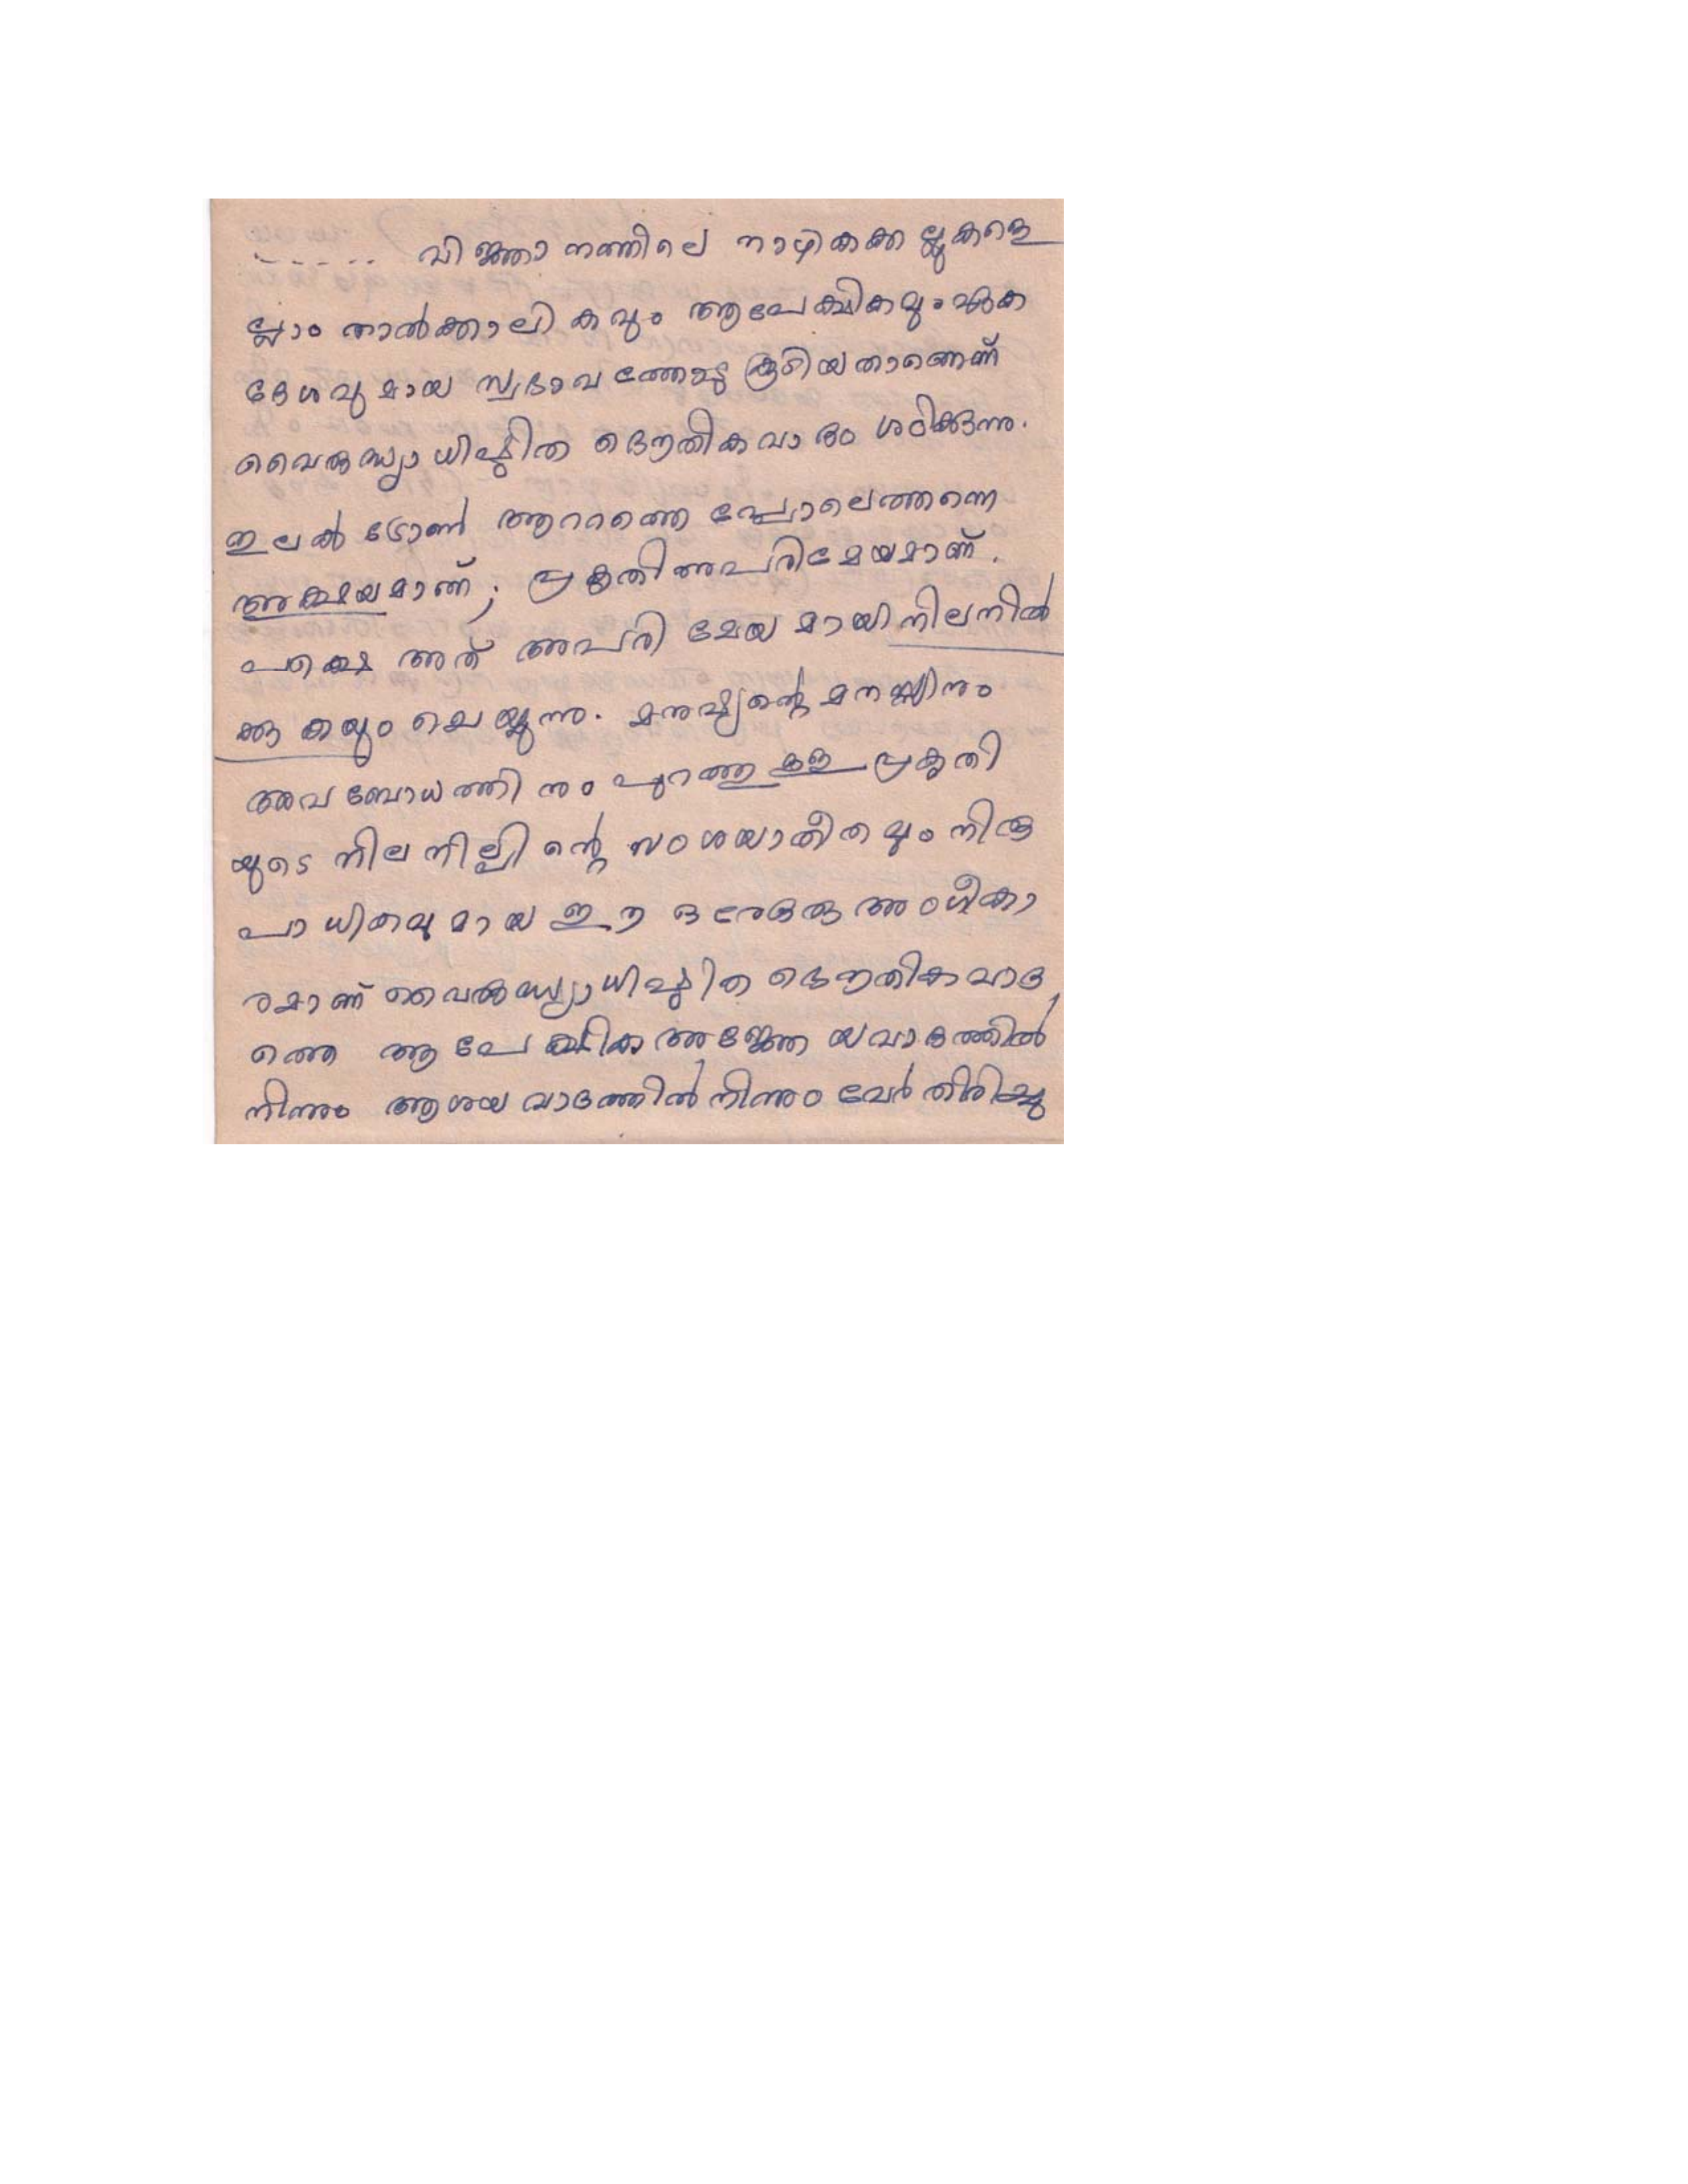 ...... വിജ്ഞാനത്തിലെ നാഴികക്കല്ലുകളെ
ല്ലാം താൽക്കാലികവും ആപേക്ഷികവും ഏക
ദേശവുമായ സ്വഭാവത്തോടു കൂടിയതാണെന്ന്
വൈരുദ്ധ്യാധിഷ്ഠിത ഭൌതികവാദം ശഠിക്കുന്നു.
ഇലൿട്രോൺ ആററത്തെ പ്പോലെത്തന്നെ
അക്ഷയമാണ്; പ്രകൃതി അപരിമേയമാണ്.
പക്ഷെ അത് അപരിമേയമായി നിലനിൽ
ക്കുകയും ചെയ്യുന്നു. മനുഷ്യന്റെ മനസ്സിനും
അവബോധത്തിനും പുറത്തുള്ള പ്രകൃതി
യുടെ നിലനില്പിന്റെ സംശയാതീതവും നിരു
പാധികവുമായ ഈ ഒരേഒരു അംഗീകാ
രമാണ് വൈരുദ്ധ്യാധിഷ്ഠിത ഭൌതികവാദ
ത്തെ ആപേക്ഷിക അജ്ഞേയവാദത്തിൽ
നിന്നും ആശയവാദത്തിൽ നിന്നും വേർതിരിച്ചു